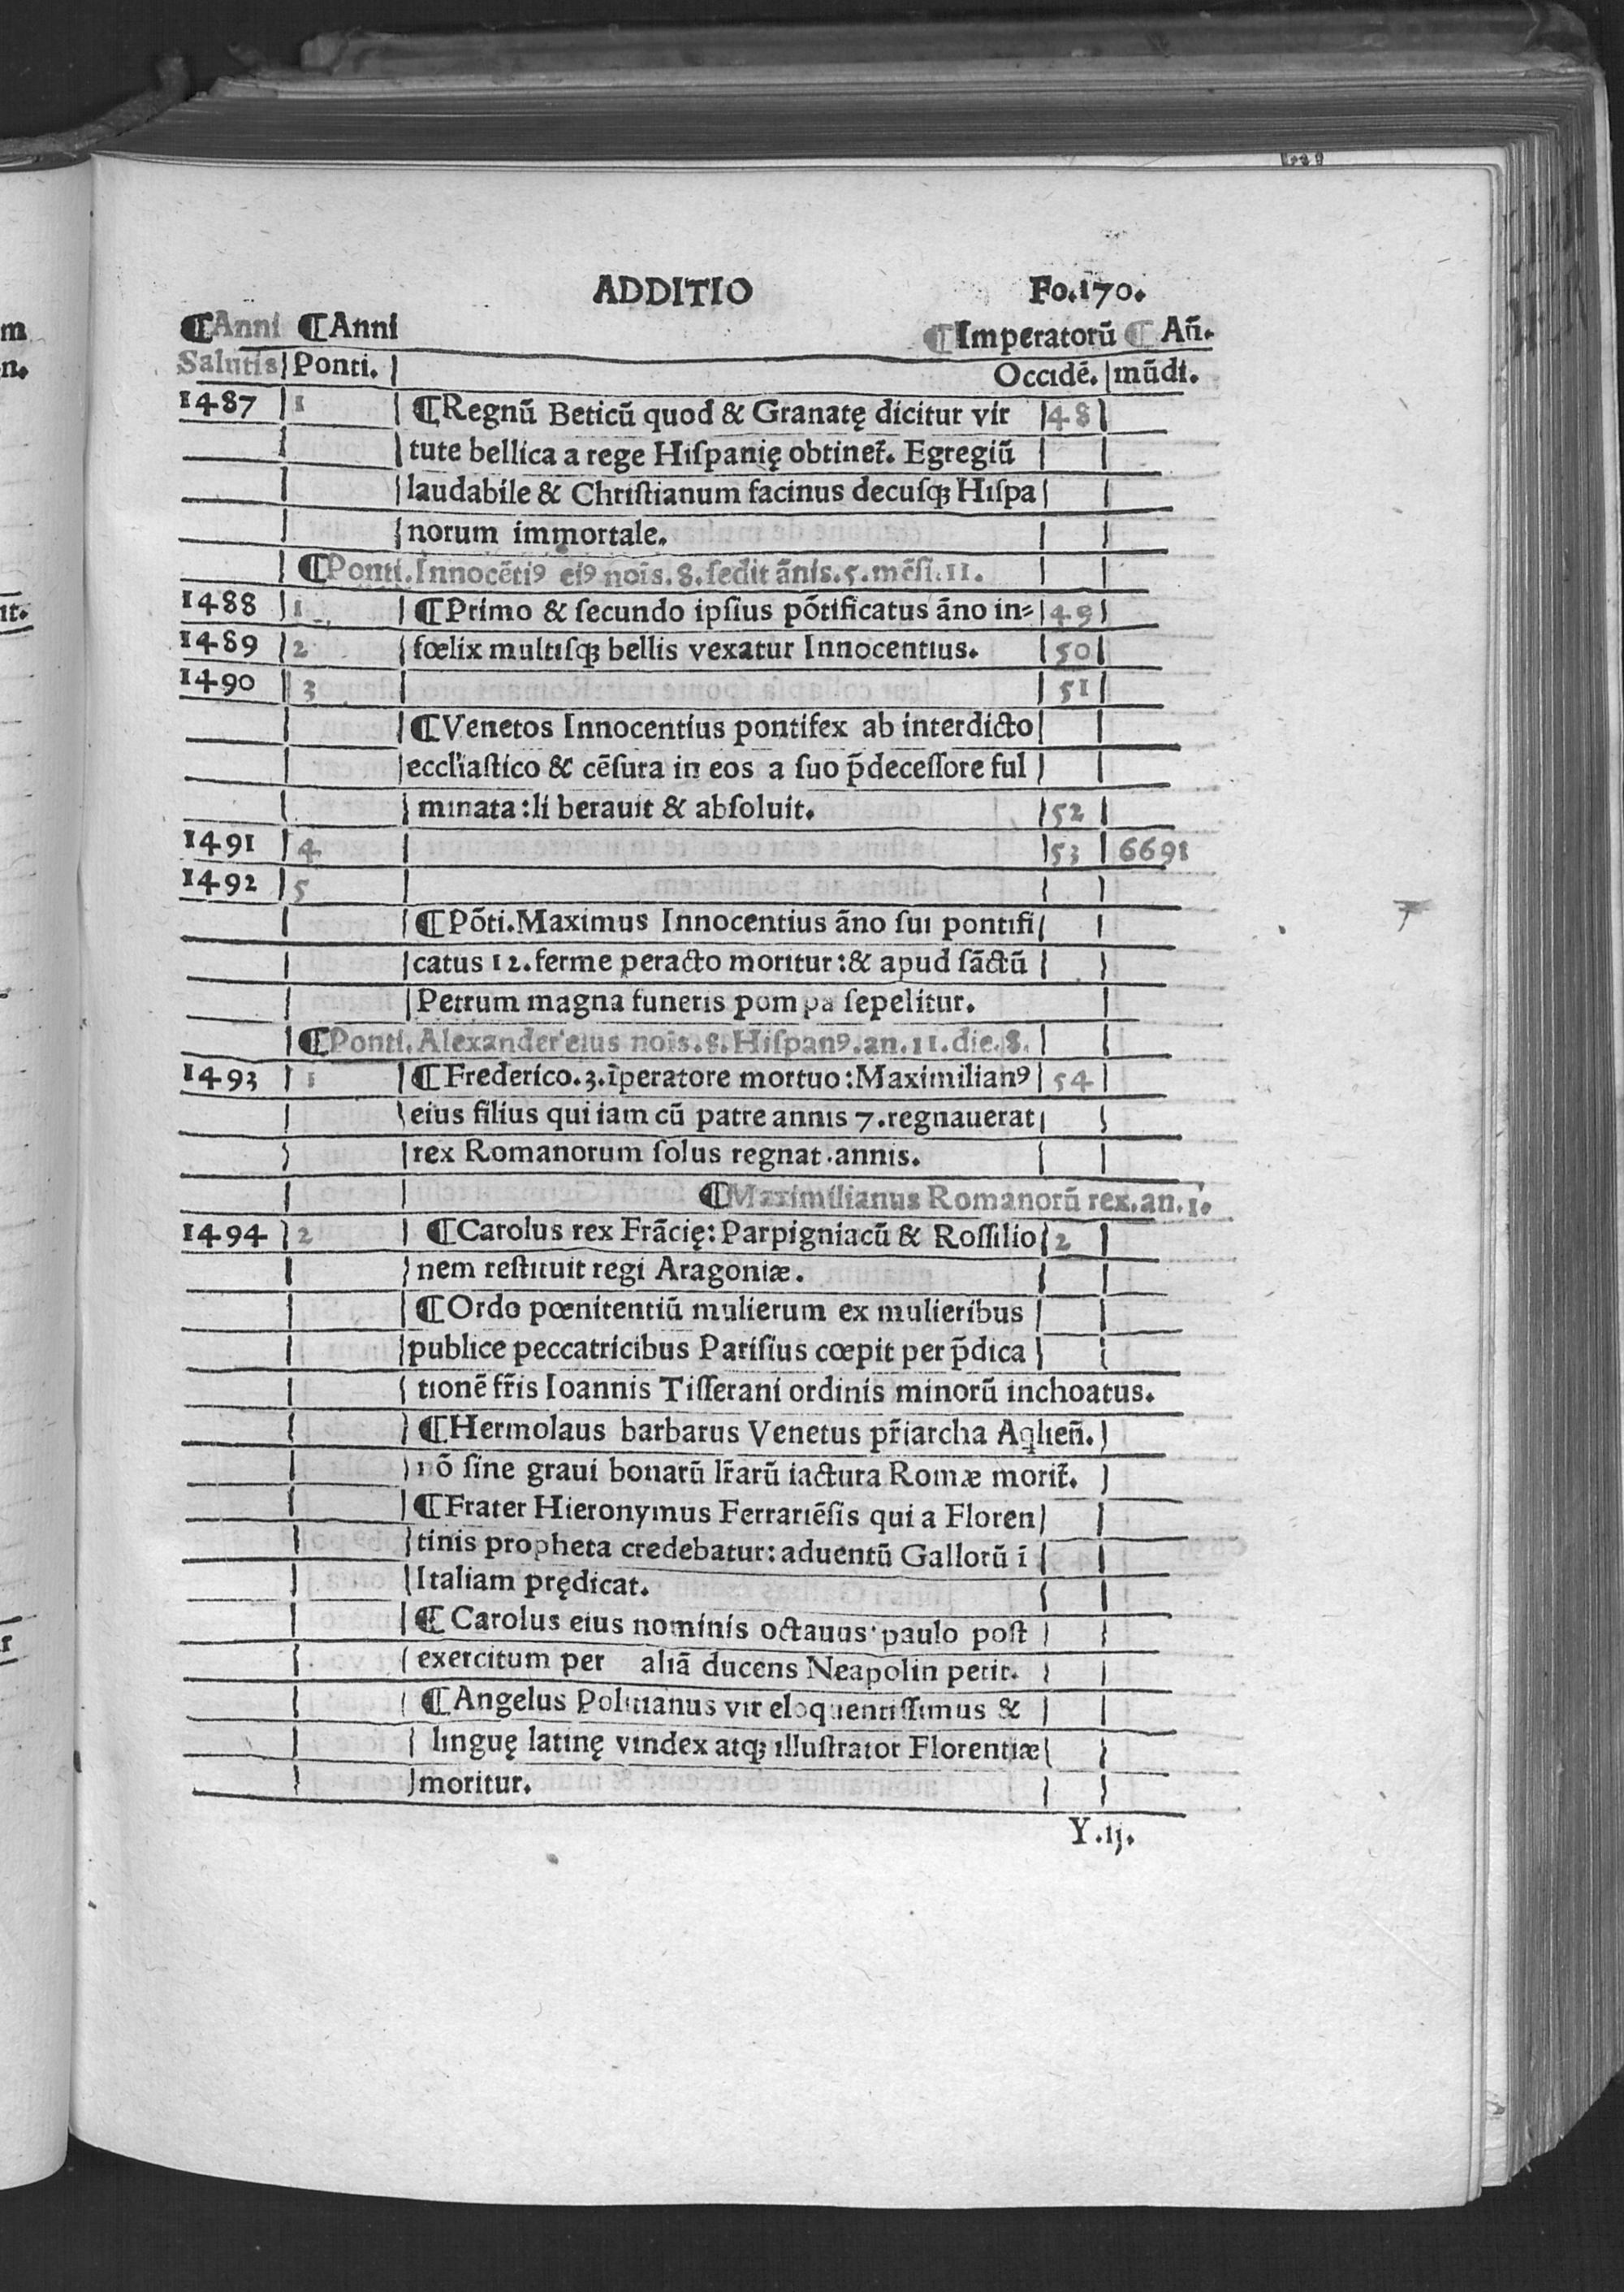 ADDITIO Fo.170.
¶Anni ¶Anni ¶Imperatorũ ¶ Añ.
Salutis Ponti. Occidẽ. mũdi.
1487 1 ¶Regnũ Beticũ quod & Granatę dicitur vir 48
tute bellica a rege Hiſpanię obtinet̃. Egregiũ
laudabile & Chriſtianum facinus decuſqꝫ Hiſpa
norum immortale.
¶Ponti.Innocẽtiꝰ eiꝰ noĩs.8.ſedit ãnis.5.mẽſi.11.
1488 1 ¶Primo & ſecundo ipſius põtificatus ãno in⸗ 49
1489 2 fœlix multiſqꝫ bellis vexatur Innocentius. 50
1490 3 51
¶Venetos Innocentius pontifex ab interdicto
eccl'iaſtico & cẽſura in eos a ſuo p̃deceſſore ful
minata:li berauit & abſoluit. 52
1491 4 53 6691
1492 5
¶Põti.Maximus Innocentius ãno ſui pontifi
catus 12.ferme peracto moritur:& apud ſãctũ
Petrum magna funeris pompa ſepelitur.
¶Ponti.Alexander eius noĩs.8.Hiſpanꝰ.an.11.die.8.
1493 1 ¶Frederico.3.ĩperatore mortuo:Maximilianꝰ 54
eius filius qui iam cũ patre annis 7.regnauerat
rex Romanorum ſolus regnat.annis.
¶Maximilianus Romanorũ rex.an.1.
1494 2 ¶Carolus rex Frãcię: Parpigniacũ & Roſſilio 2
nem reſtituit regi Aragoniæ.
¶Ordo pœnitentiũ mulierum ex mulieribus
publice peccatricibus Pariſius cœpit per p̃dica
tionẽ fr̃is Ioannis Tiſſerani ordinis minorũ inchoatus.
¶Hermolaus barbarus Venetus pr̃iarcha Aqlieñ.
nõ ſine graui bonarũ lr̃arũ iactura Romæ morit̃.
¶Frater Hieronymus Ferrariẽſis qui a Floren
tinis propheta credebatur: aduentũ Gallorũ ĩ
Italiam prędicat.
¶Carolus eius nominis octauus paulo poſt
exercitum per aliã ducens Neapolin petit.
¶Angelus Politianus vir eloquentiſſimus &
linguę latinę vindex atqꝫ illuſtrator Florentiæ
moritur.
Y.ij.